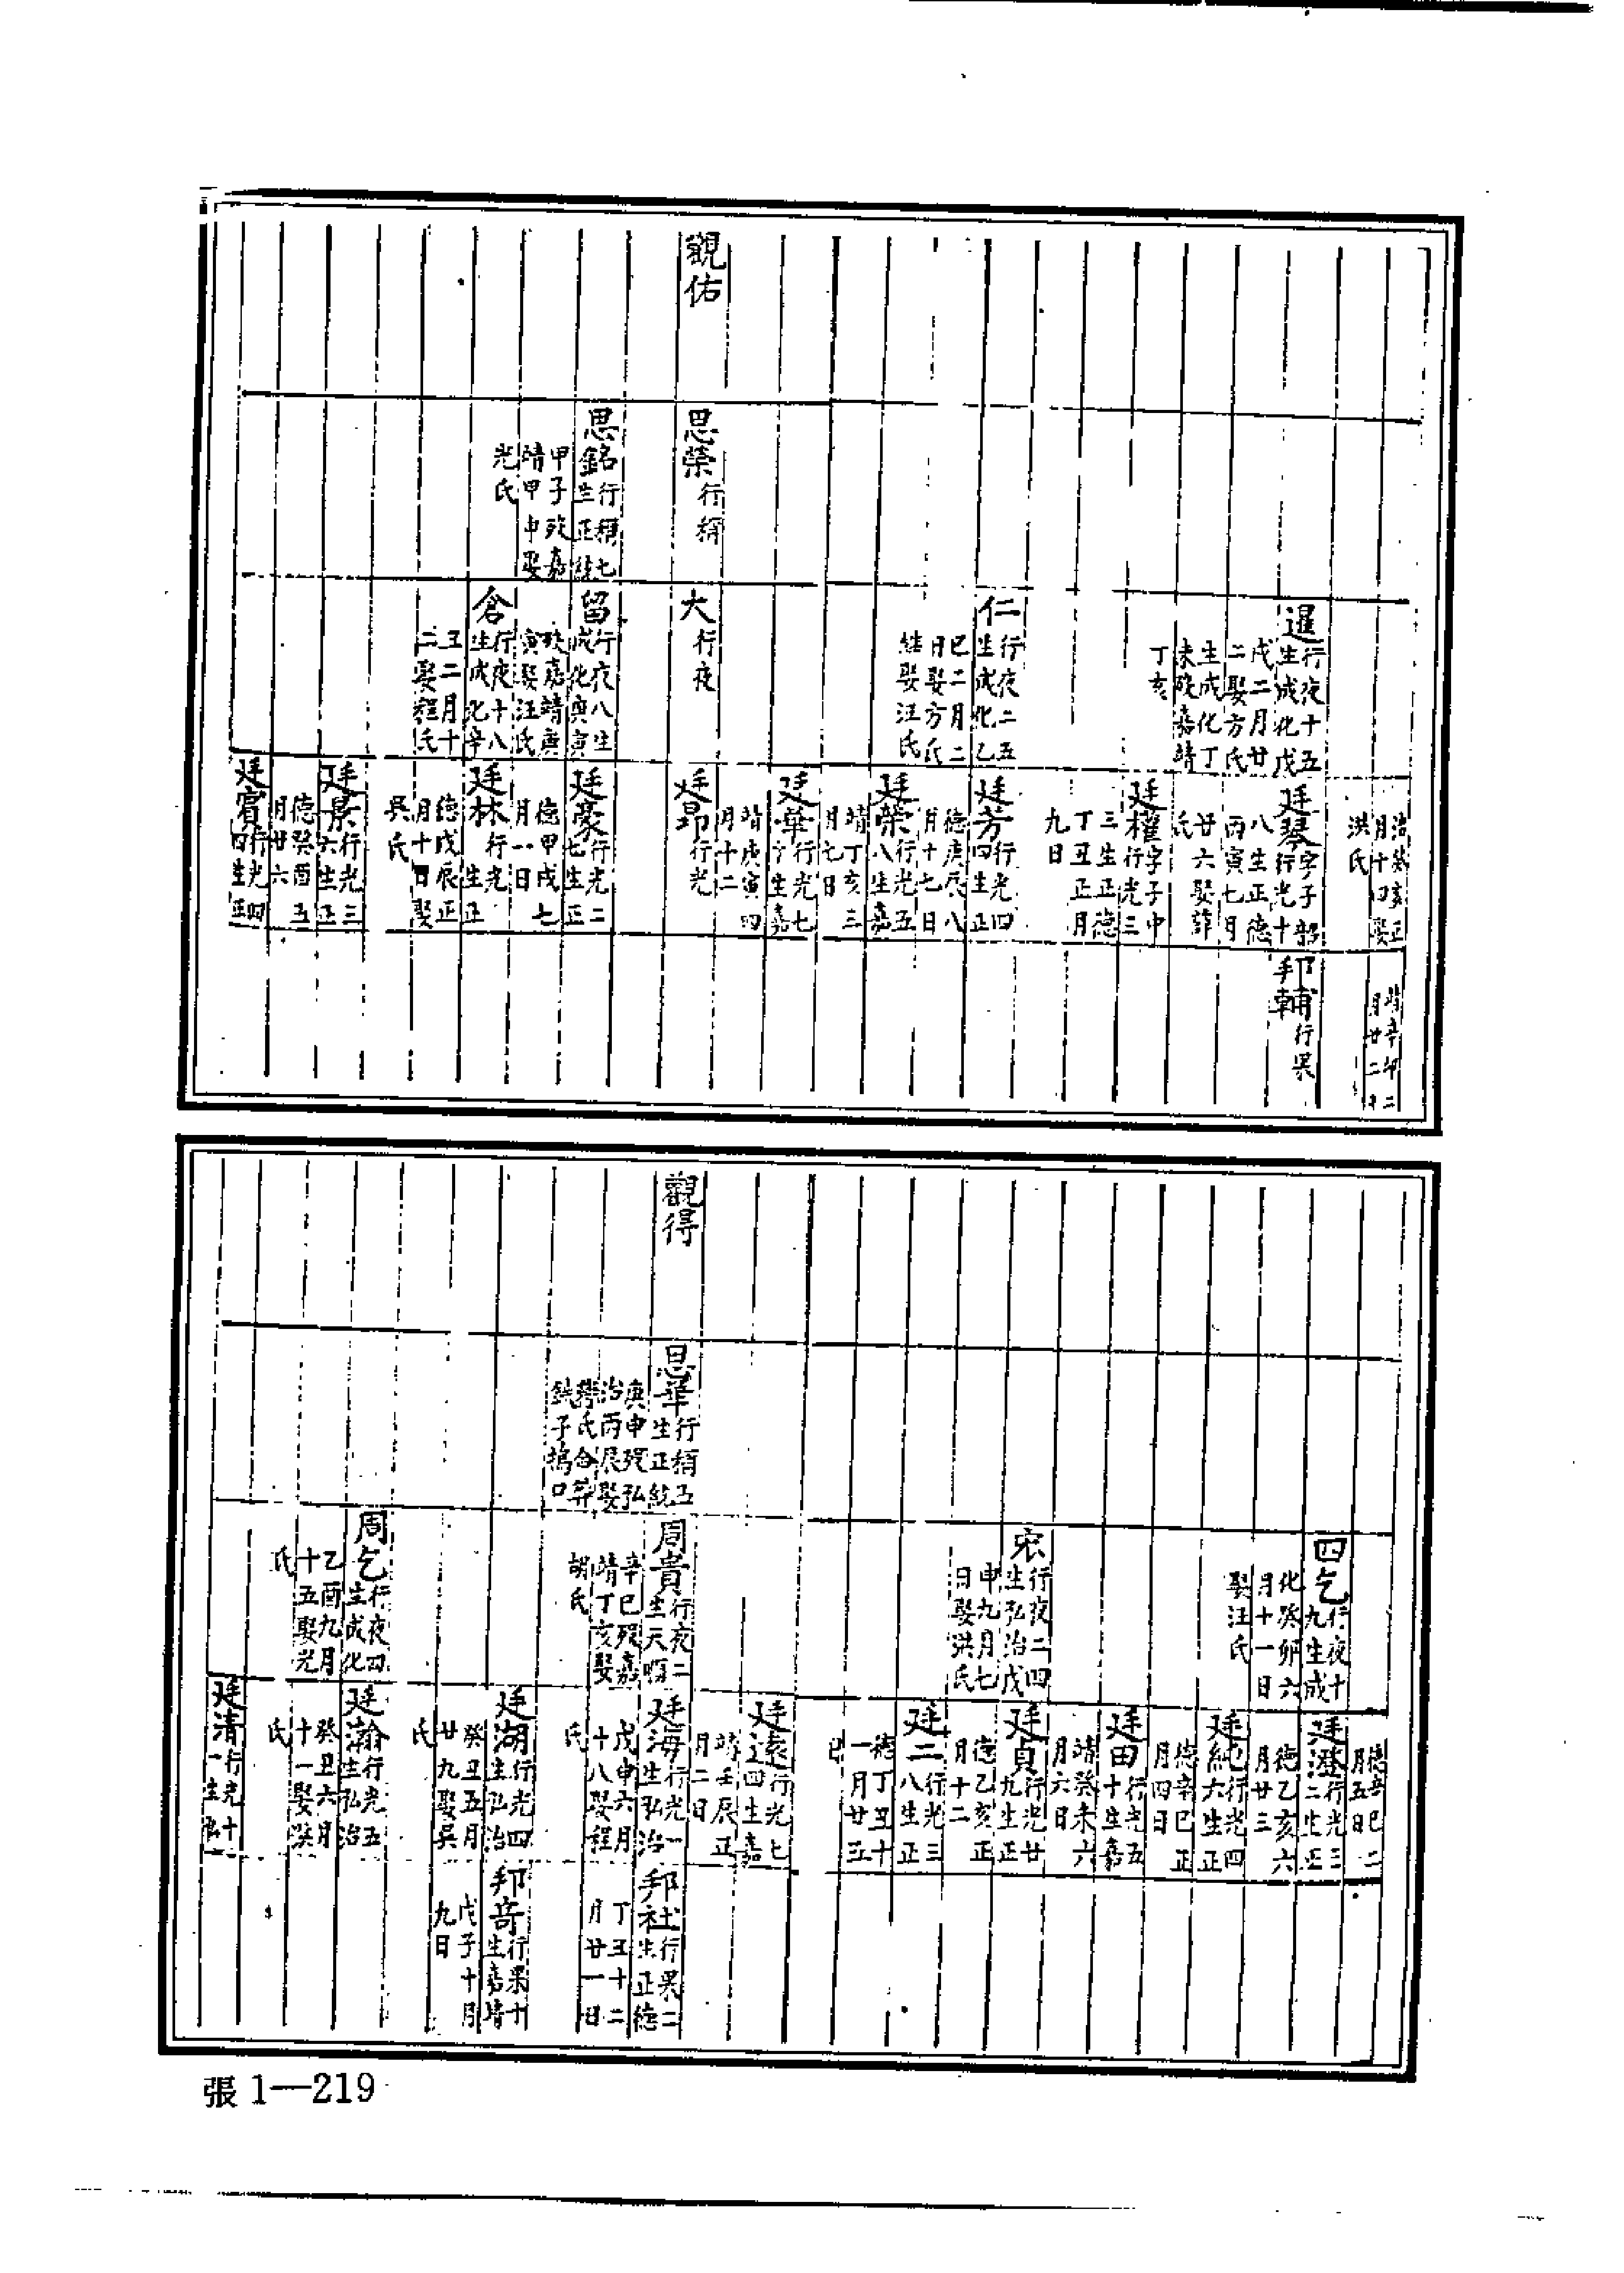 觀佑
思榮行稱
思銘行稱七生正統甲子歿嘉靖甲申娶光氏
暹行夜十五生成化戊戌二月廿二娶方氏生成化丁未歿嘉靖丁亥
仁行夜二五生成化乙巳二月二日娶方氏繼娶汪氏
大行夜
留行夜八生成化庚寅歿嘉靖庚寅娶汪氏
倉行夜十八生成化辛丑二月十二娶程氏
治癸亥正月十四娶洪氏
廷琴字子韶行光十八生正德丙寅七月廿六娶薛氏
廷權字子中行光三三生正德丁丑正月九日
廷芳行光四四生正德庚辰八月十七日
廷榮行光五八生嘉靖丁亥三月七日
廷華行光七十生嘉靖庚寅四月十二
廷昂行光
廷豪行光二七生正德甲戌七月一日
廷林行光生正德戊辰正月十四日娶吳氏
廷景行光三六生正德癸酉五月廿六
廷賓行光四四生正
靖辛卯二月廿二
邦輔行果
觀得
思華行稱五生正統庚申歿弘治丙辰娶蔣氏合葬子塢口
四乞行夜十九生成化癸卯六月十一日娶汪氏
宋行夜二四生弘治戊申九月七日娶洪氏
周貴行夜二生天順辛巳歿嘉靖丁亥娶胡氏
周乞行夜四生成化乙酉九月十五娶光氏
德辛巳二月五日
廷澄行光三二生正德乙亥六月廿三
廷純行光四六生正德辛巳正月四日
廷田行光五十生嘉靖癸未六月六日
廷貞行光廿九生正德乙亥正月十二
廷二行光三八生正德丁丑十一月廿五日
廷遠行光七四生嘉靖壬辰正月二日
廷海行光一生弘治戊申六月十八娶程氏
廷湖行光四生弘治癸丑五月廿九娶吳氏
廷瀚行光五生弘治癸丑六月十一娶洪氏
廷清行光十一生弘
邦社行果二生正德丁丑十二月廿一日
邦奇行果十生嘉靖戊子十月九日
張1—219